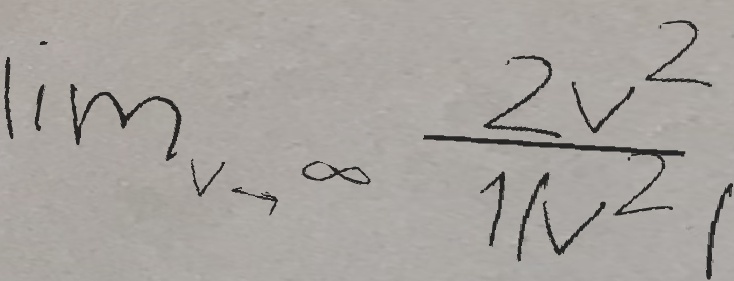 lim_{v→∞} \frac{2v^2}{1|v^2|}